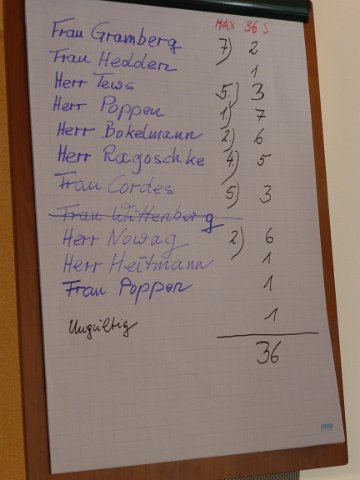 MAX 36 S
Frau Gramberg 7) 2
Frau Hedden 1
Herr Tews 5) 3
Herr Poppen 1) 7
Herr Bokelmann 2) 6
Herr Ragoschke 4) 5
Frau Cordes 5) 3
Frau Wittenberg
Herr Nowag 2) 6
Herr Heitmann 1
Frau Poppen 1
Ungültig 1
36